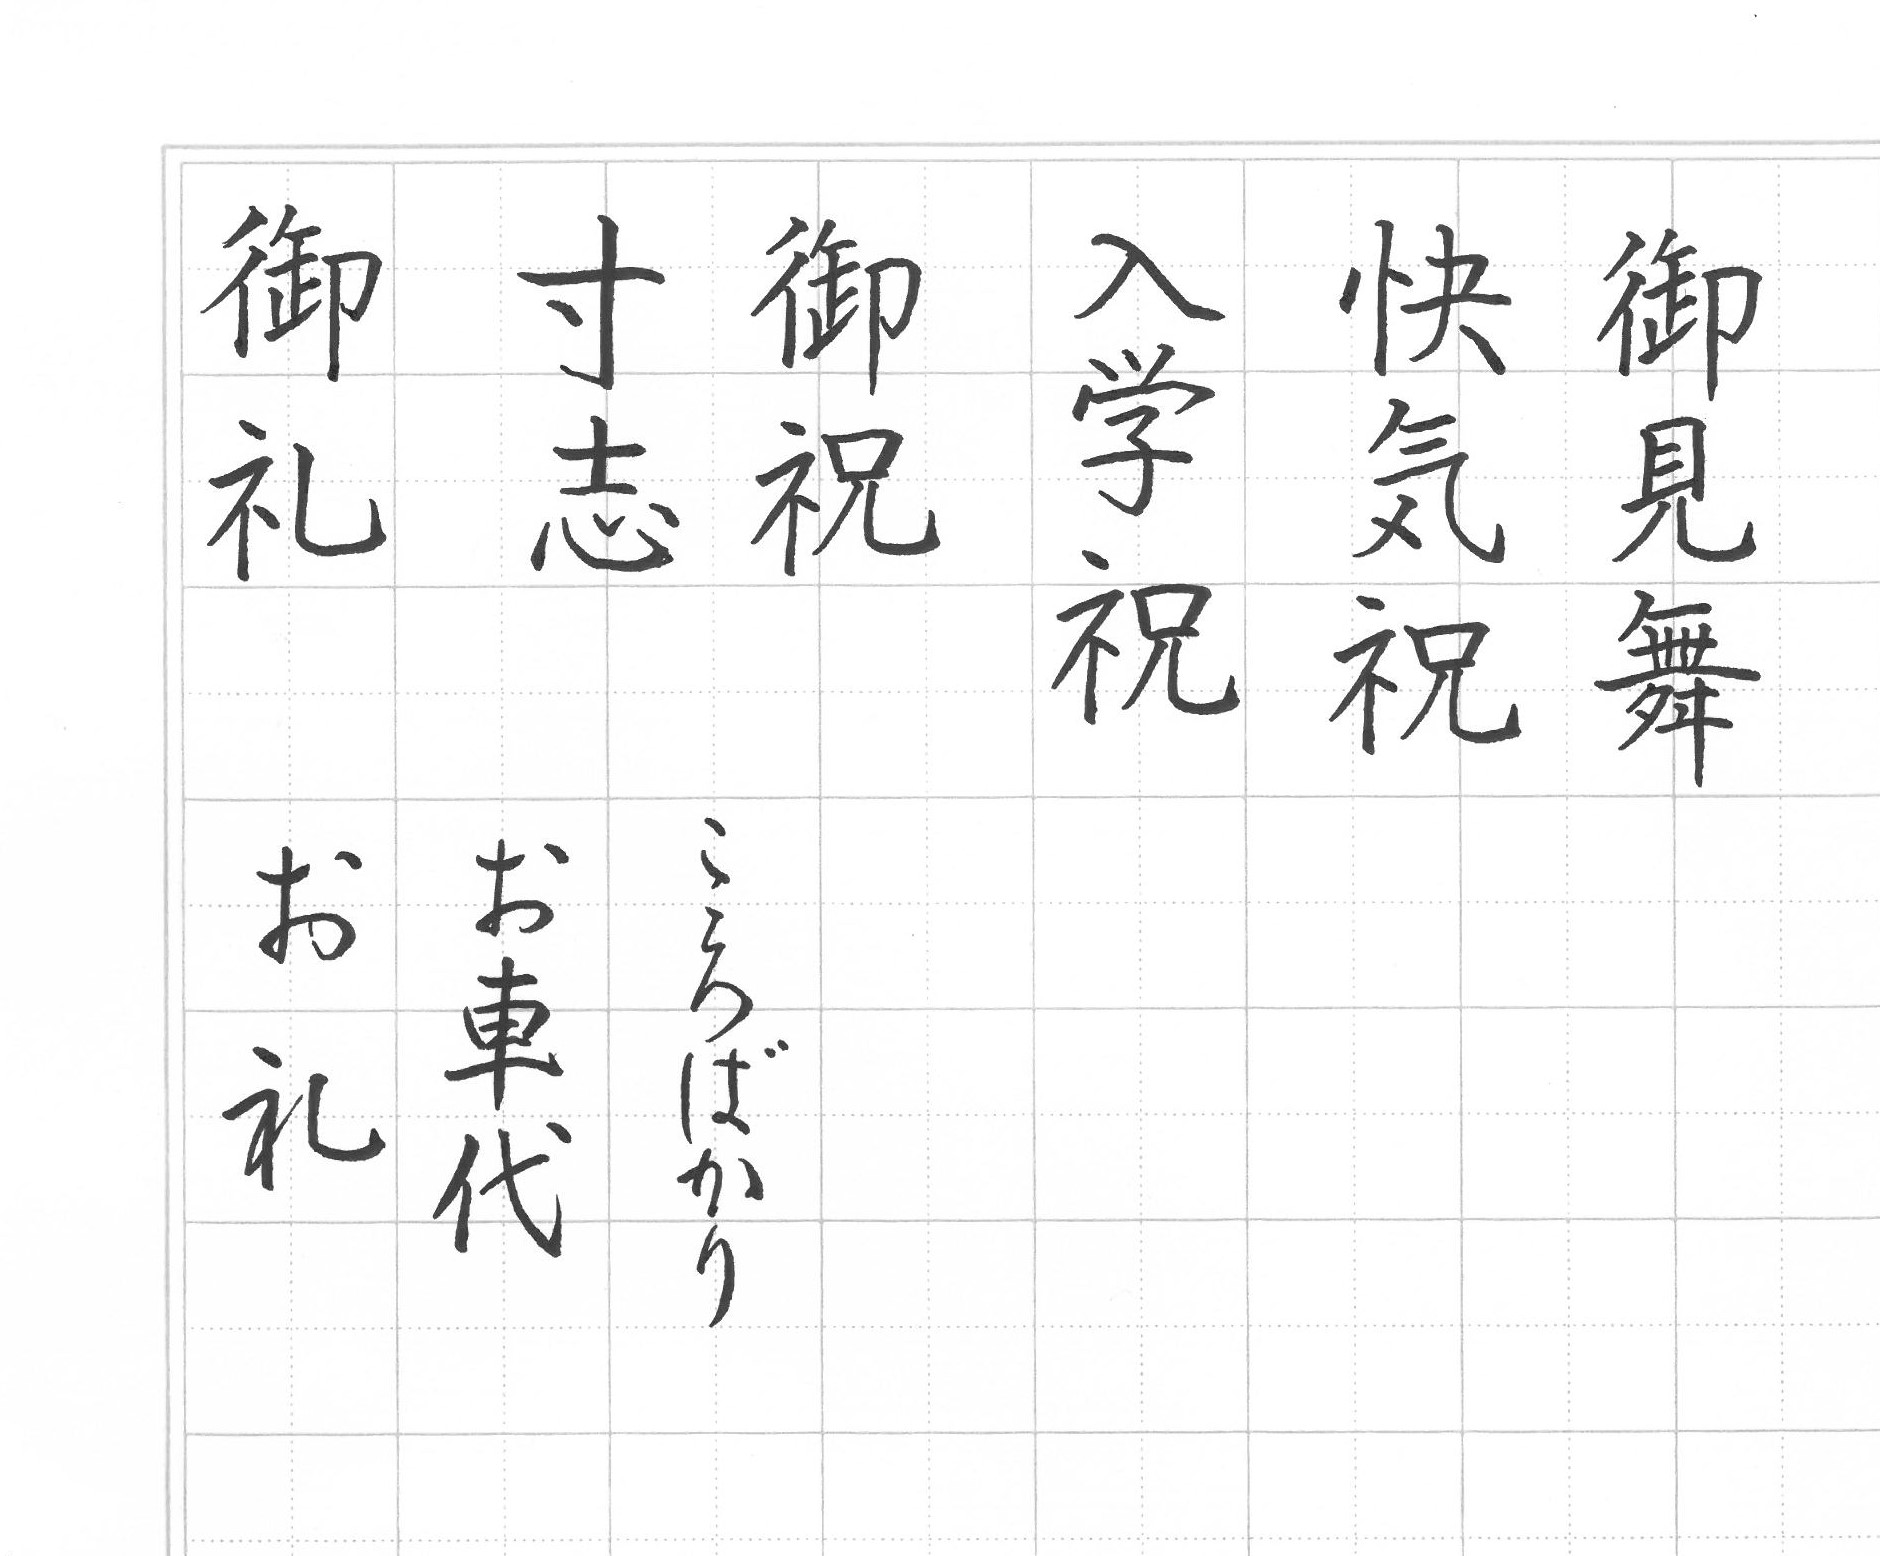 御見舞
快気祝
入学祝
御祝
寸志
御礼
こころばかり
お車代
お礼